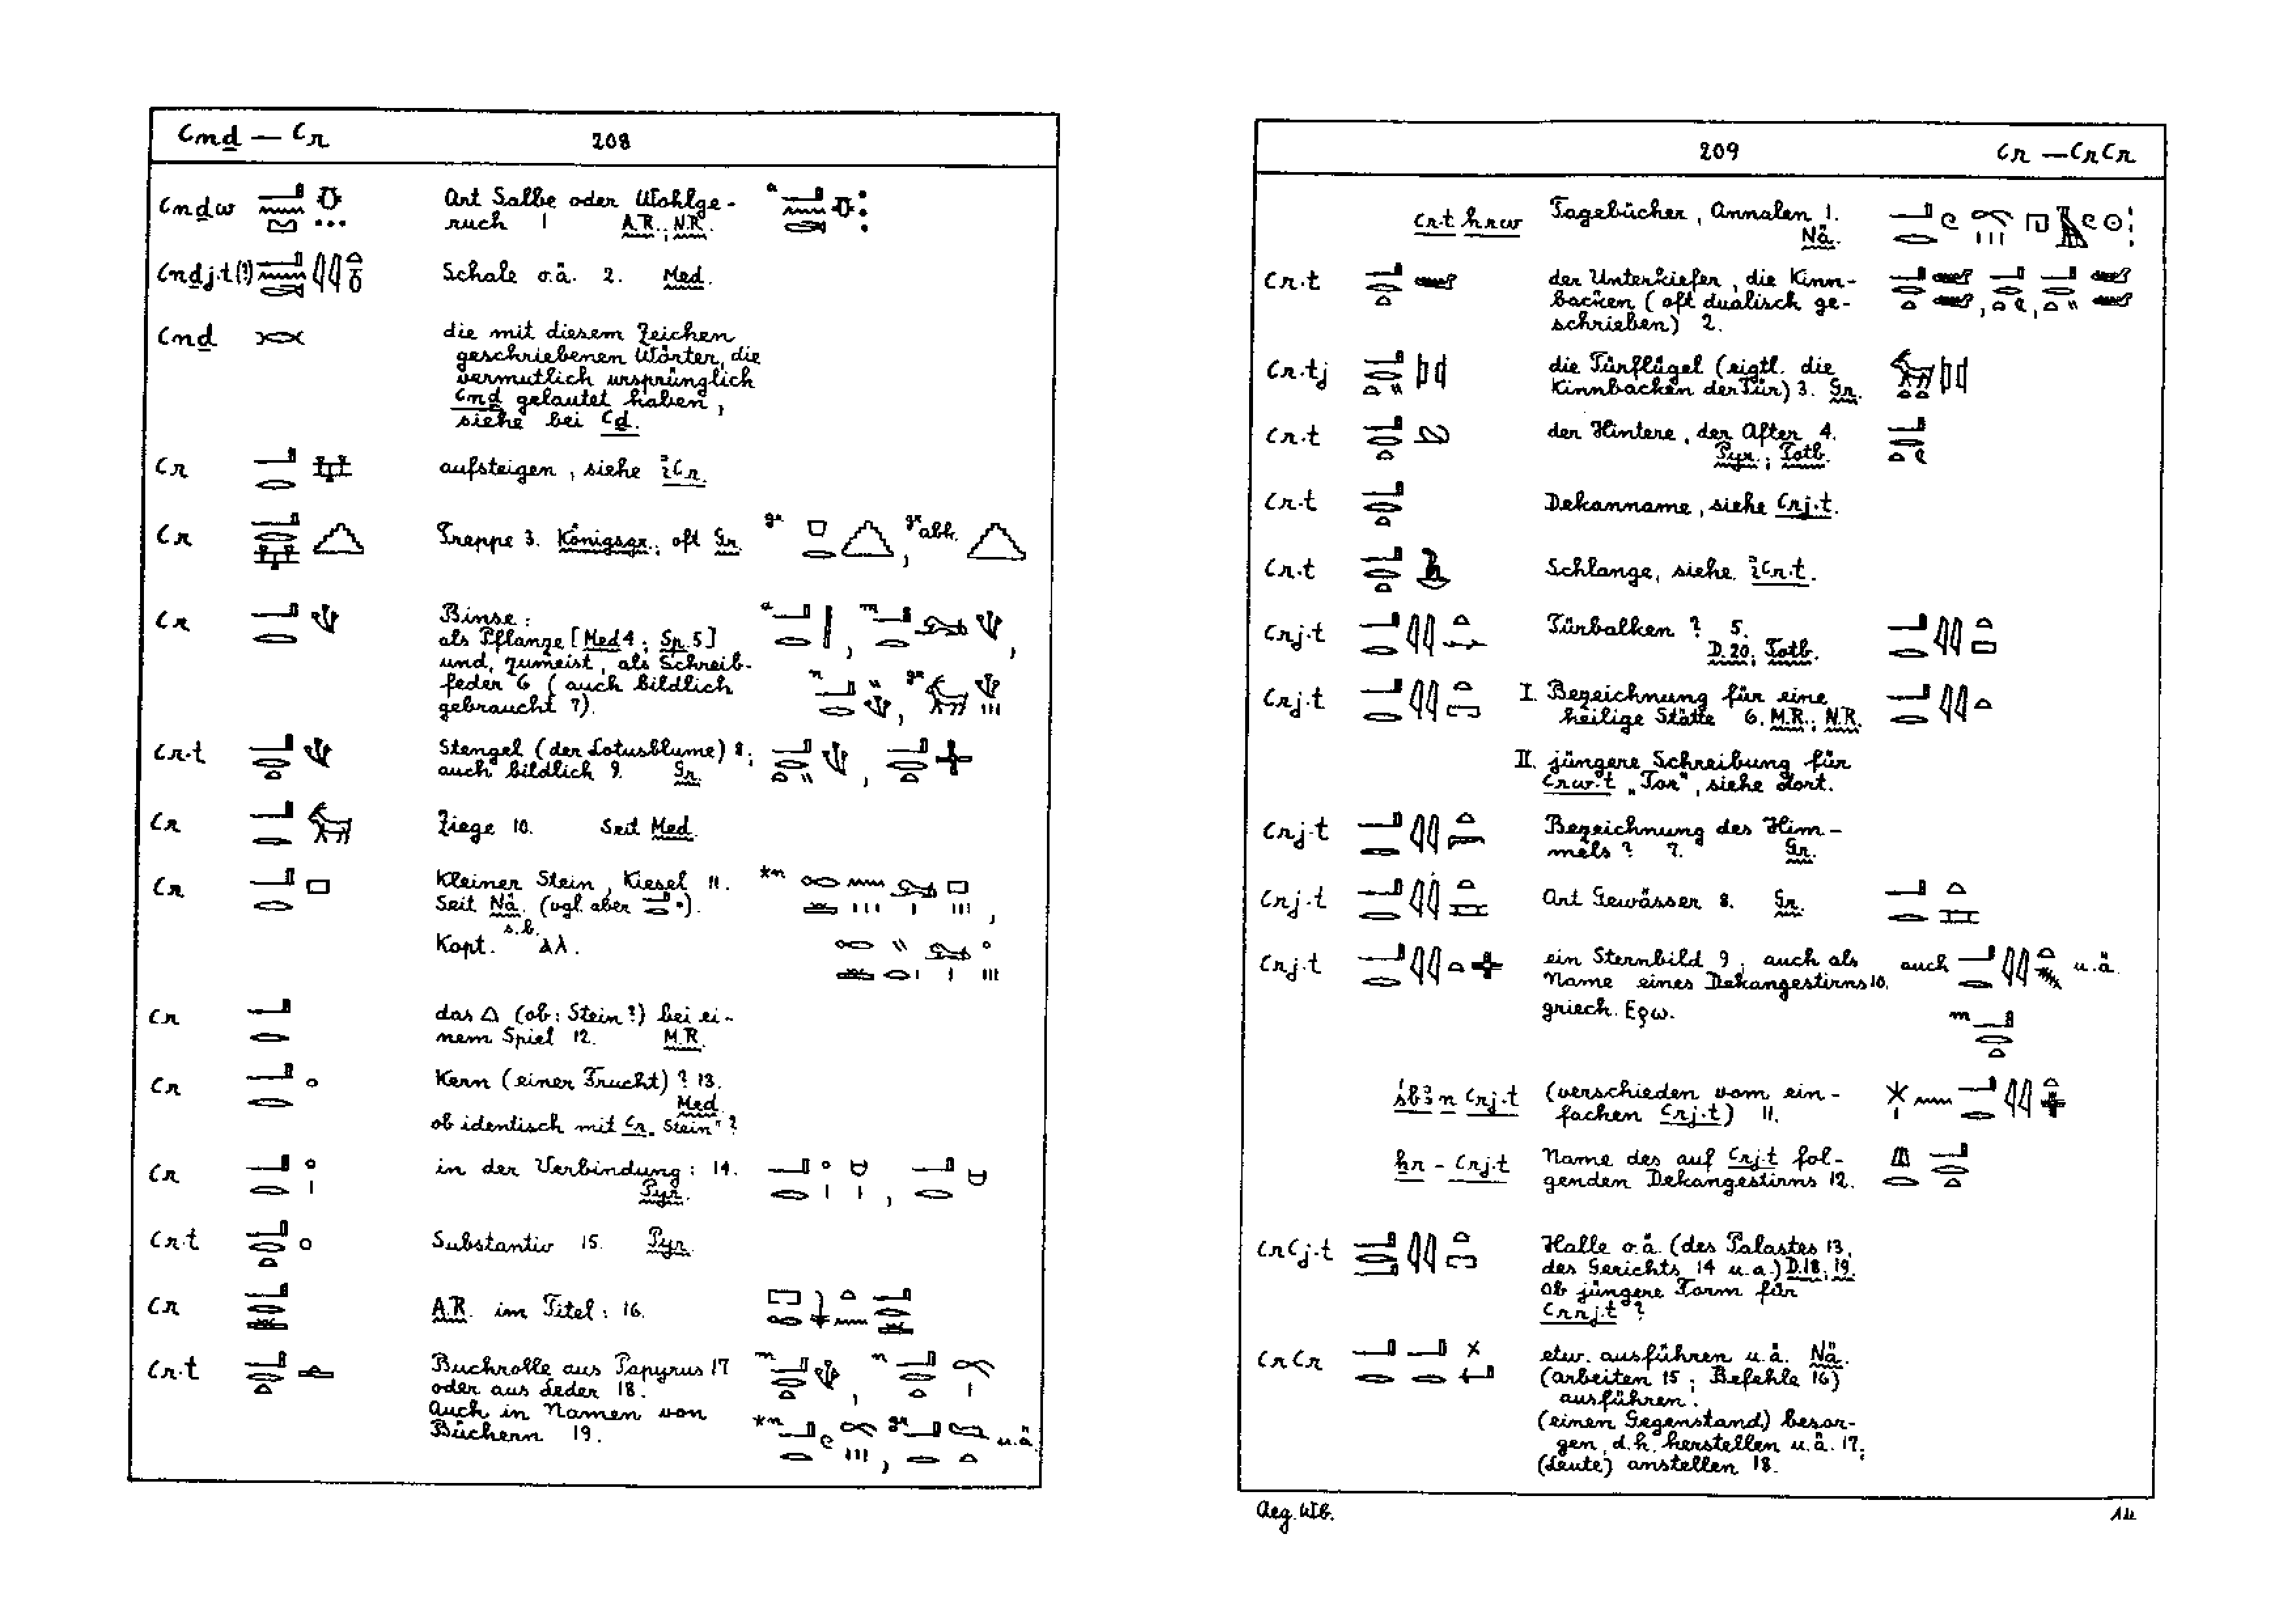 ꜥnḏ — ꜥr 208
ꜥnḏw Art Salbe oder Wohlge-
ruch 1 A.R.; N.R.
ꜥnḏj.t(?) Schale o.ä. 2. Med.
ꜥnḏ die mit diesem Zeichen
geschriebenen Wörter, die
vermutlich ursprünglich
ꜥnḏ gelautet haben,
siehe bei ꜥḏ.
ꜥr aufsteigen, siehe iꜥr.
ꜥr Treppe 3. Königsgr.; oft Gr. gr , gr abk.
ꜥr Binse: a , m ,
als Pflanze [Med 4; Sp. 5]
und, zumeist, als Schreib-
feder 6 (auch bildlich n , gr
gebraucht 7).
ꜥr.t Stengel (der Lotusblume) 8;
auch bildlich 9. Gr.
ꜥr Ziege 10. Seit Med.
ꜥr Kleiner Stein, Kiesel 11. *n
Seit Nä. (vgl. aber ).
Kopt. s.b. ⲁⲗ.
ꜥr das △ (ob: Stein?) bei ei-
nem Spiel 12. M.R.
ꜥr Kern (einer Frucht)? 13.
Med.
ob identisch mit ꜥr „Stein"?
ꜥr in der Verbindung: 14.
Pyr.
ꜥr.t Substantiv 15. Pyr.
ꜥr A.R. im Titel: 16.
ꜥr.t Buchrolle aus Papyrus 17 m , n
oder aus Leder 18.
Auch in Namen von *n , gr u.ä.
Büchern 19.
209 ꜥr — ꜥrꜥr
ꜥr.t hrw Tagebücher, Annalen 1.
Nä.
ꜥr.t der Unterkiefer, die Kinn-
backen (oft dualisch ge-
schrieben) 2.
ꜥr.tj die Türflügel (eigtl. die
Kinnbacken der Tür) 3. Gr.
ꜥr.t der Hintere, der After 4.
Pyr.; Totb.
ꜥr.t Dekanname, siehe ꜥrj.t.
ꜥr.t Schlange, siehe iꜥr.t.
ꜥrj.t Türbalken? 5.
D.20; Totb.
ꜥrj.t I. Bezeichnung für eine
heilige Stätte 6. M.R.; N.R.
II. jüngere Schreibung für
ꜥrw.t „Tor", siehe dort.
ꜥrj.t Bezeichnung des Him-
mels? 7. Gr.
ꜥrj.t Art Gewässer 8. Gr.
ꜥrj.t ein Sternbild 9; auch als auch u.ä.
Name eines Dekangestirns 10.
griech. Ερω. m
śbꜣ n ꜥrj.t (verschieden vom ein-
fachen ꜥrj.t) 11.
ẖr - ꜥrj.t Name des auf ꜥrj.t fol-
genden Dekangestirns 12.
ꜥrꜥj.t Halle o.ä. (des Palastes 13,
des Gerichts 14 u.a.) D.18, 19.
Ob jüngere Form für
ꜥrrj.t?
ꜥrꜥr etw. ausführen u.ä. Nä.
(Arbeiten 15; Befehle 16)
ausführen.
(einen Gegenstand) besor-
gen, d.h. herstellen u.ä. 17;
(Leute) anstellen 18.
Aeg. Wb. 14